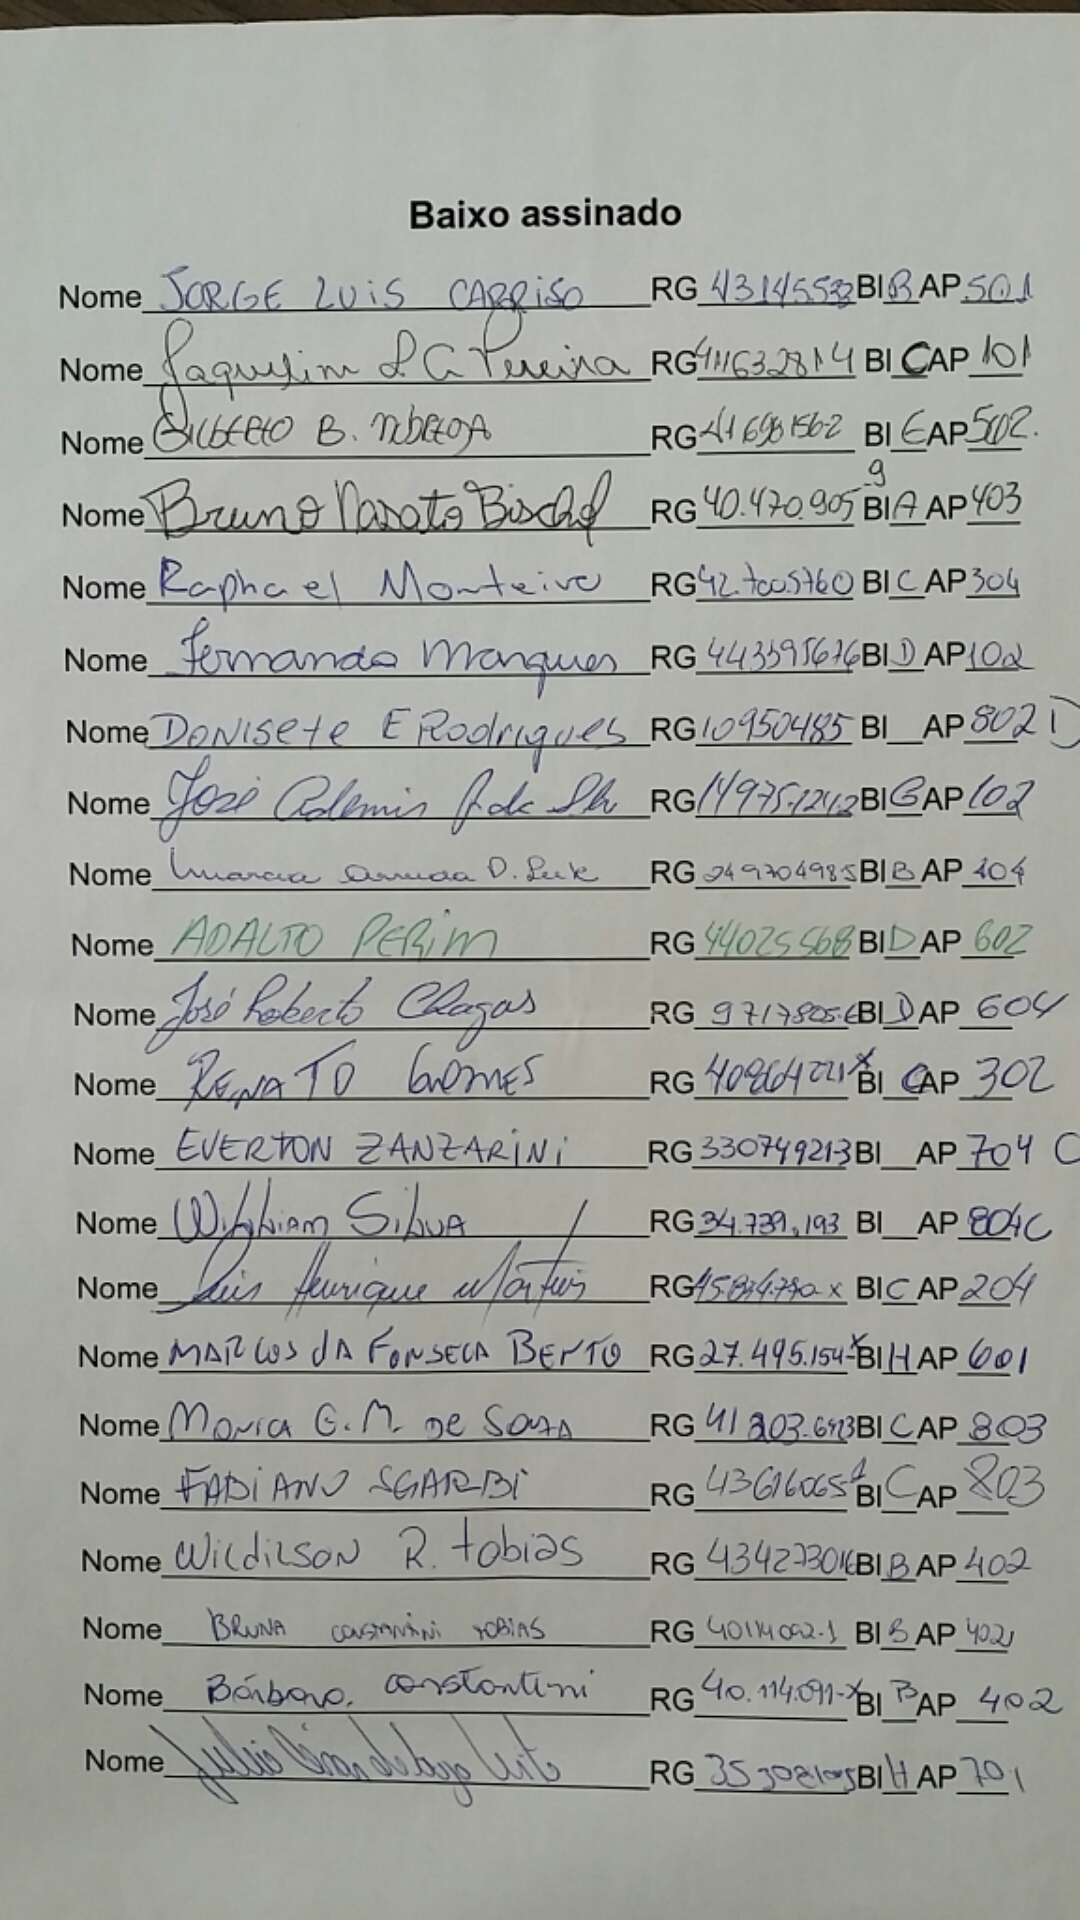 Baixo assinado
Nome JORGE LUIS CARRISO RG 43145532 BI B AP 501
Nome Jaquelim S. C. Pereira RG 411632814 BI C AP 101
Nome GILBERTO B. NOBREGA RG 416981562 BI E AP 502.
Nome Bruno Bischof RG 40.470.905 9 BI A AP 403
Nome Raphael Monteiro RG BI C AP 304
Nome Fernanda Marques RG 443395676 BI D AP 102
Nome Donisete E Rodrigues RG 10950485 BI AP 802 D
Nome José RG BI AP 102
Nome Marcia Arruda D. RG 249704985 BI B AP 404
Nome ADALTO PERIM RG 44025568 BI D AP 602
Nome José Roberto Chagas RG BI D AP 604
Nome RENATO GOMES RG 40864221 X BI C AP 302
Nome EVERTON ZANZARINI RG 330749213 BI AP 704 C
Nome William SILVA RG 34.739.193 BI AP 804C
Nome Luis Henrique Martins RG BI C AP 204
Nome MARCOS dA FONSECA BENTO RG 27.495.154-X BI H AP 601
Nome MONICA G. M. DE SOUZA RG BI C AP 803
Nome FABIANO SGARBI RG 43616065 1 BI C AP 803
Nome WildilSON R. tobias RG 434273016 BI B AP 402
Nome BRUNA CONSTANTINI TOBIAS RG 40114092-1 BI B AP 402
Nome Bárbara. constantini RG 40.114.091-X BI B AP 402
Nome RG BI H AP 701